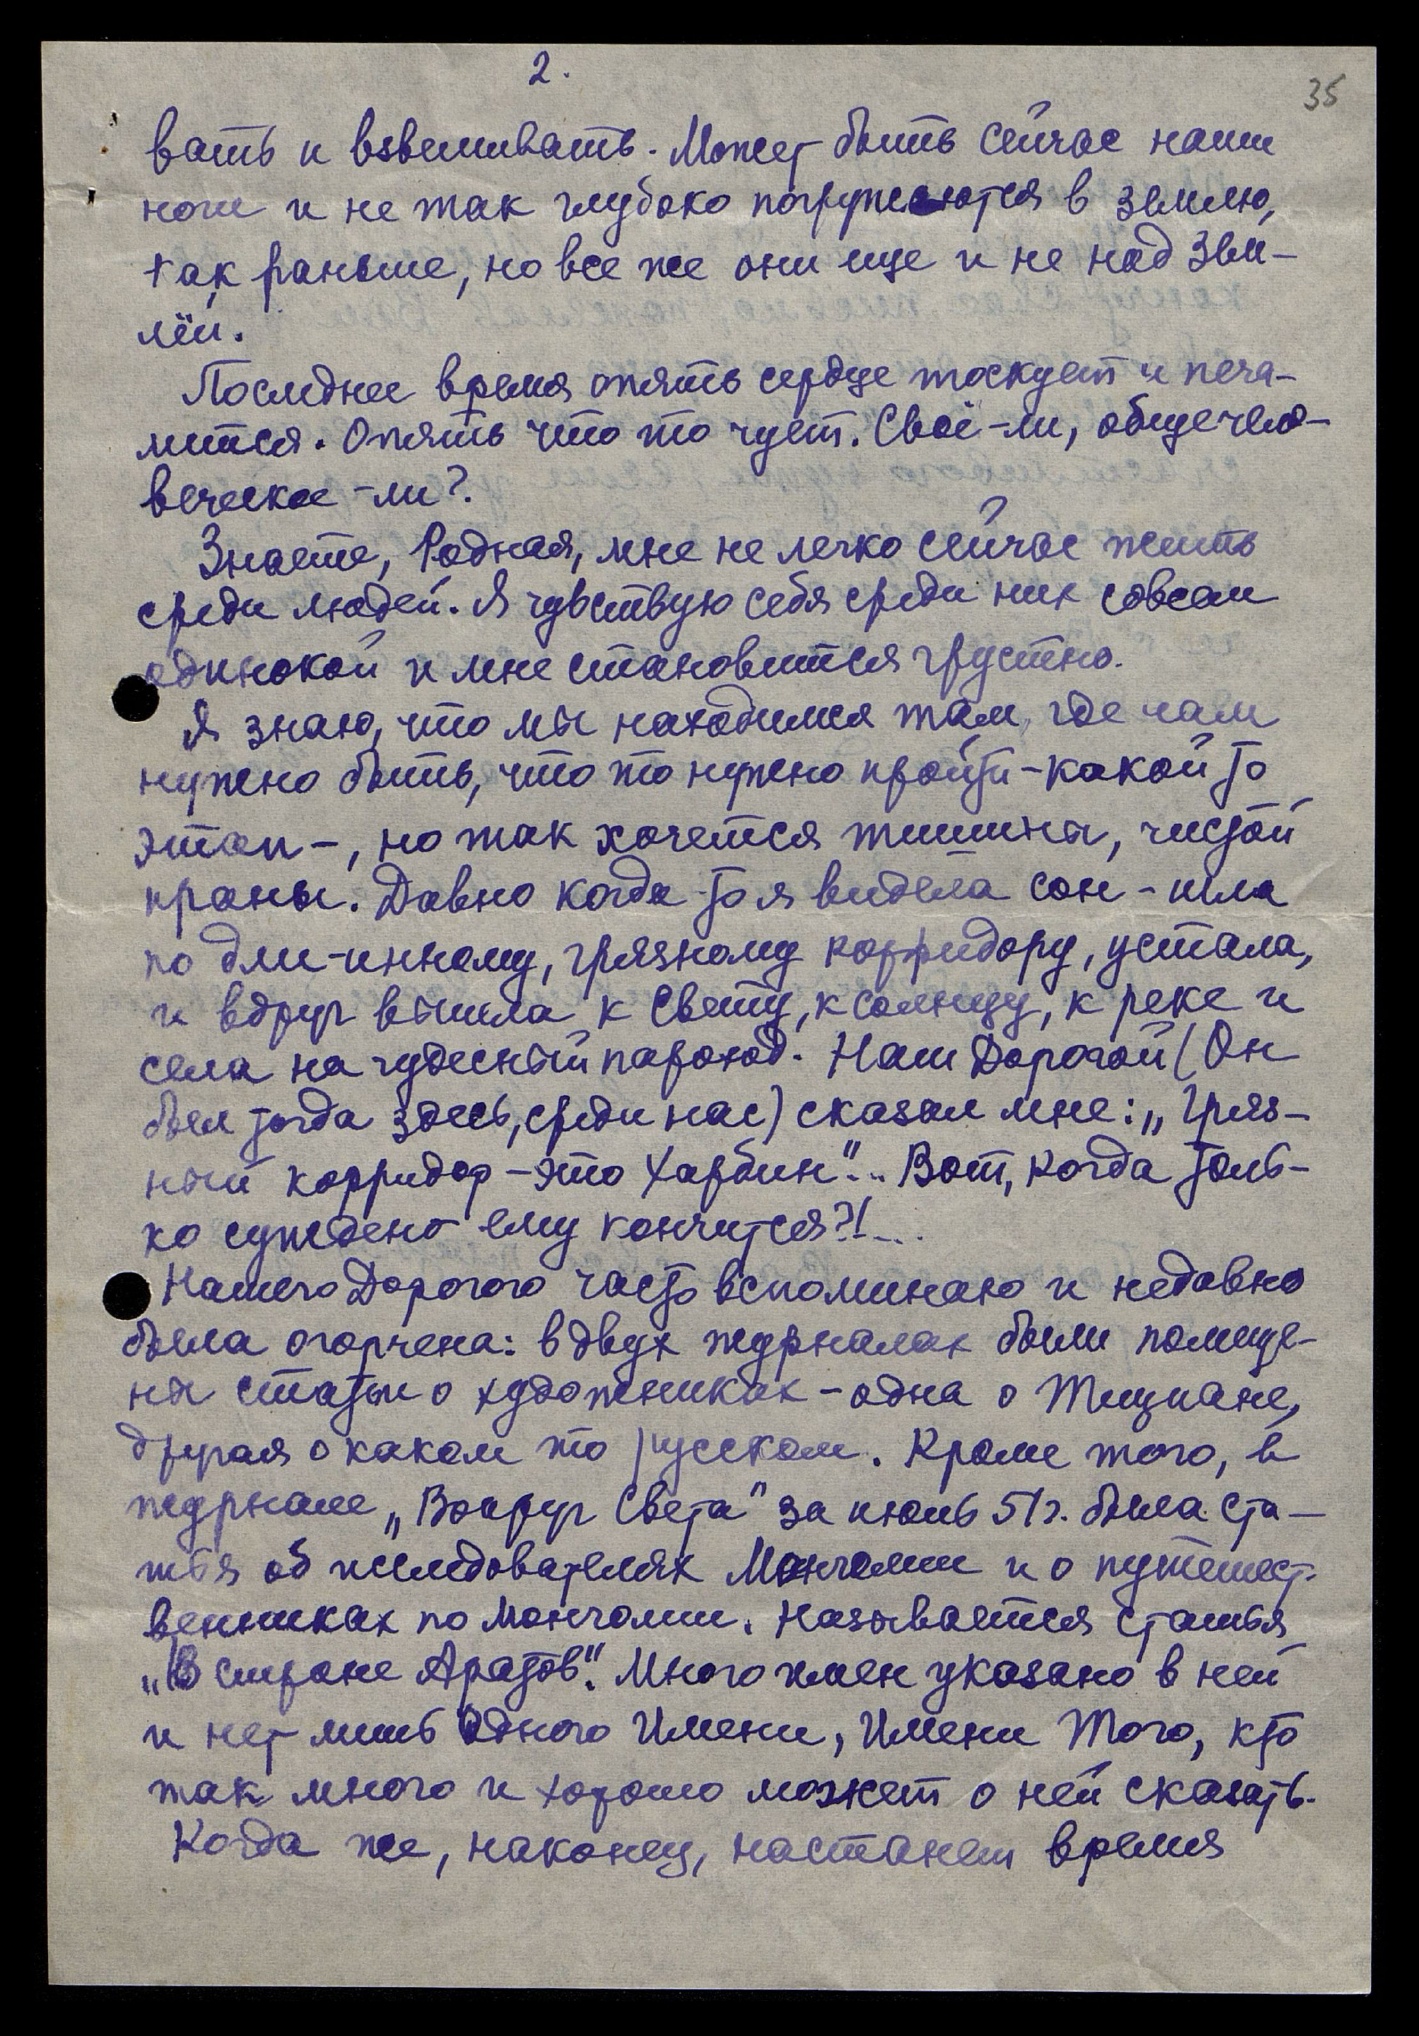 2.
35
вать и взвешивать. Может быть сейчас наши
ноги и не так глубоко погружаются в землю,
как раньше, но все же они еще и не над Зем-
лёй.
Последнее время опять сердце тоскует и печа-
лится. Опять что то чует. Своё-ли, общечело-
веческое-ли?.
Знаете, Родная, мне не легко сейчас жить
среди людей. Я чувствую себя среди них совсем
одинокой и мне становится грустно.
Я знаю, что мы находимся там, где нам
нужно быть, что то нужно пройти-какой то
этап-, но так хочется тишины, чистой
праны. Давно когда-то я видела сон - шла
по дли-инному, грязному корридору, устала,
и вдруг вышла к Свету, к солнцу, к реке и
села на чудесный пароход. Наш Дорогой (Он
был тогда здесь, среди нас) сказал мне: „Гряз-
ный корридор - это Харбин"... Вот, когда толь-
ко суждено ему кончится?!...
Нашего Дорогого часто вспоминаю и недавно
была огорчена: в двух журналах были помеще-
ны статьи о художниках - одна о Тициане,
другая о каком то русском. Кроме того, в
журнале „Вокруг Света" за июль 51г. была ста-
тья об исследователях Монголии и о путешест-
венниках по Монголии. Называется статья
„В стране Аратов". Много имен указано в ней
и нет лишь Одного Имени, Имени Того, кто
так много и хорошо может о ней сказать.
Когда же, наконец, настанет время